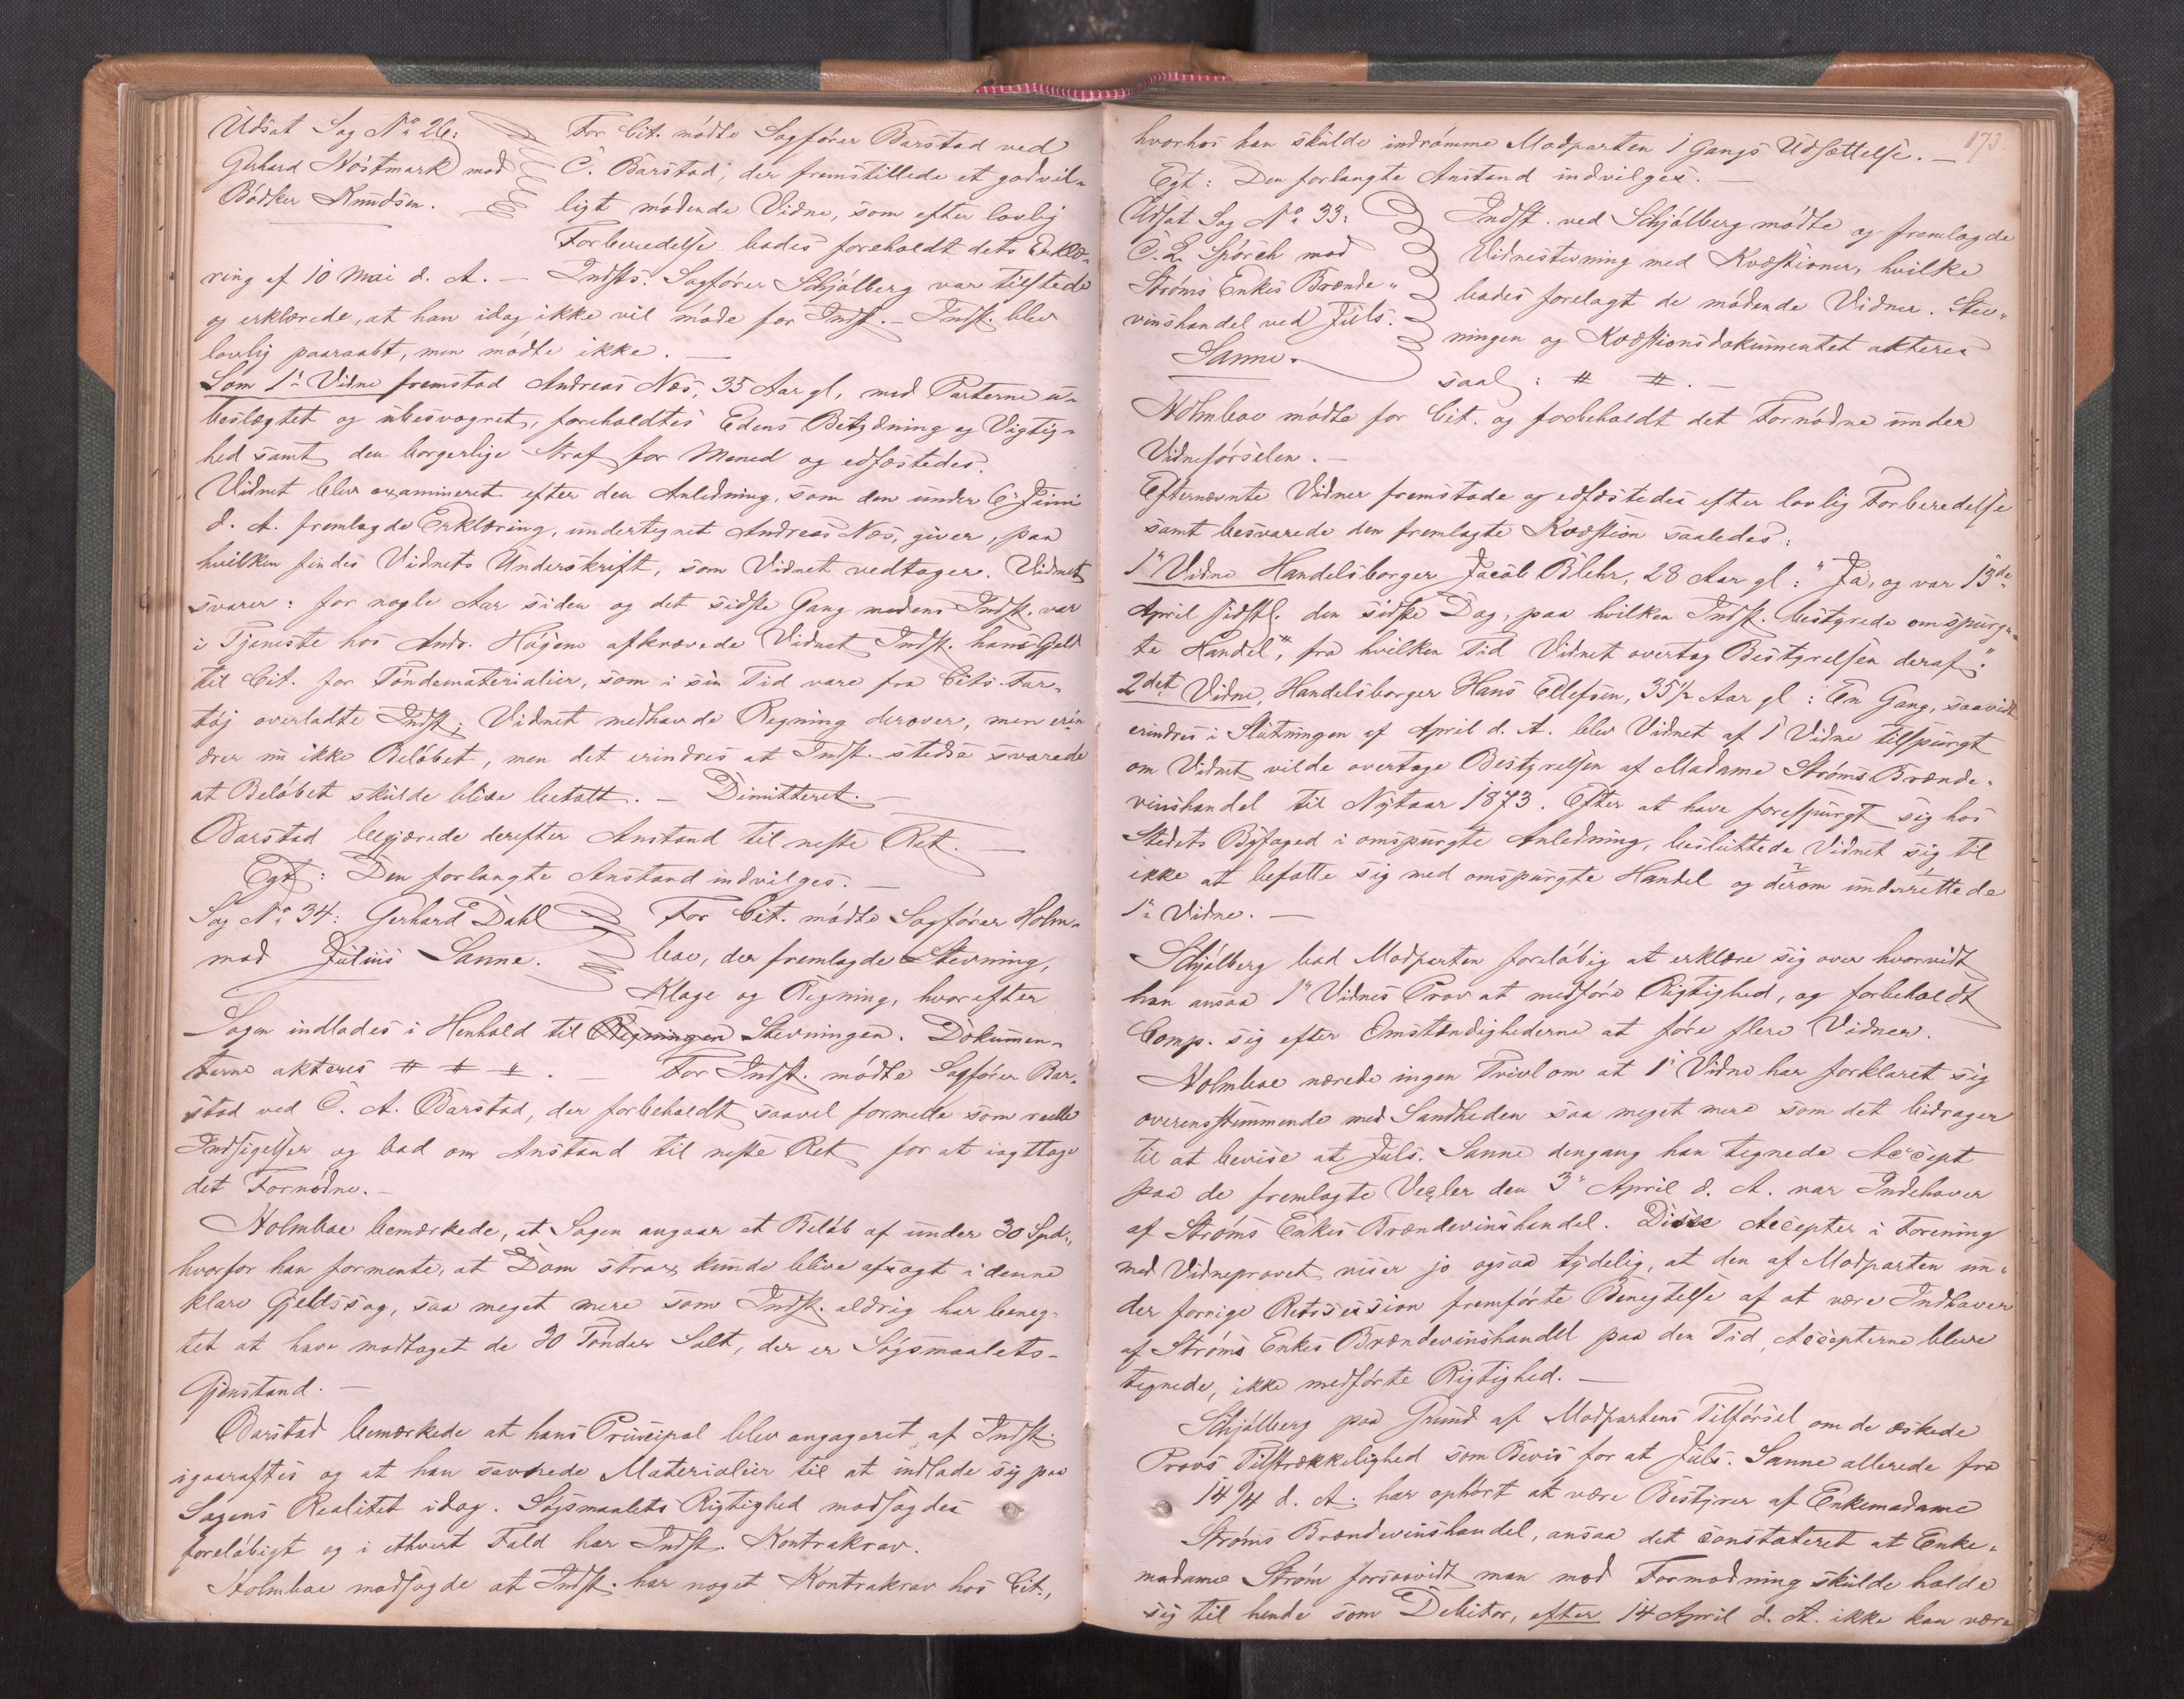 Udsat Sag No 26:
Gerhard Nöstmark mod
Bödker Knudsen.
For Cit. mödte Sagförer Barstad ved
C. Barstad, der fremstillede et godvil-
ligt mödende Vidne, som efter lovlig
Forberedelse bades foreholdt dets Erklæ-
ring af 10 Mai d. A. — Indsts. Sagförer Schjölberg var tilstede
og erklærede, at han idag ikke vil möde for Indst. — Indst. blev
lovlig paaraabt, men mödte ikke. —
Som 1ste Vidne fremstod Andreas Næs, 35 Aar gl, med Parterne u-
beslægtet og ubesvogret, foreholdtes Edens Betydning og Vigtig-
hed samt den borgerlige Straf for Mened og edfæstedes.
Vidnet blev examineret efter den Anledning, som den under 6te Juni
d. A. fremlagde Erklæring, undertegnet Andreas Næs, giver, paa
hvilken findes Vidnets Underskrift, som Vidnet vedtager. Vidnet
svarer: for nogle Aar siden og det sidste Gang medens Indst. var
i Tjeneste hos Andr. Högem afkrævede Vidnet Indst. hans Gjeld
til Cit. for Töndematerialier, som i sin Tid vare fra Cits. Far-
töj overladte Indst; Vidnet medhavde Regning derover, men erin
drer nu ikke Belöbet, men det erindres at Indst. stedse svarede
at Belöbet skulde blive betalt. — Dimitteret. —
Barstad begjærede derefter Anstand til neste Ret. —
Egt: Den forlangte Anstand indvilges. —
Sag No 34: Gerhard Dahl
mod Julius Sanne.
For Cit. mödte Sagförer Holm-
boe, der fremlagde Stevning,
Klage og Regning, hvorefter
Sagen indlades i Henhold til Regningen Stevningen. Dokumen-
terne akteres # # #. — For Indst. mödte Sagförer Bar-
stad ved C. A. Barstad, der forbeholdt saavel formelle som reelle
Indsigelser og bad om Anstand til neste Ret for at iagttage
det Fornödne. —
Holmboe bemærkede, at Sagen angaar et Belöb af under 30 Spd.,
hvorfor han formente, at Dom strax kunde blive afsagt i denne
klare Gjeldssag, saa meget mere som Indst. aldrig har beneg-
tet at have modtaget de 30 Tönder Salt, der er Sögsmaalets-
Gjenstand. —
Barstad bemærkede at hans Principal blev engageret af Indst.
igaaraftes og at han savnede Materialier til at indlade sig paa
Sagens Realitet idag. Sögsmaalets Rigtighed modsagdes
foreløbigt og i ethvert Fald har Indst. Kontrakrav.
Holmboe modsagde at Indst. har noget Kontrakrav hos Cit.,
173.
hvorhos han skulde indrömme Modparten 1 Gangs Udsættelse. —
Egt: Den forlangte Anstand indvilges. —
Udsat Sag No 33:
C. L. Spörch mod
Ströms Enkes Brænde-
vinshandel ved Juls.
Sanne.
Indst. ved Schjölberg mödte og fremlagde
Vidnestevning med Kvæstioner, hvilke
bades forelagt de mödende Vidner. Stev-
ningen og Kvæstionsdokumentet akteres
saal: # #. —
Holmboe mödte for Cit. og forbeholdt det Fornödne under
Vidneförselen. —
Efternævnte Vidner fremstode og edfæstedes efter lovlig Forberedelse
samt besvarede den fremlagte Kvæstion saaledes:
1ste Vidne Handelsborger Jacob Blehr, 28 Aar gl: "Ja, og var 13de
April sidstl. den sidste Dag, paa hvilken Indst. bestyrede omspurg-
te Handel", fra hvilken Tid Vidnet overtog Bestyrelsen deraf."
2det Vidne, Handelsborger Hans Ellefsen, 35½ Aar gl: En Gang, saavidt
erindres i Slutningen af April d. A. blev Vidnet af 1 Vidne tilspurgt
om Vidnet vilde overtage Bestyrelsen af Madame Ströms Brænde-
vinshandel til Nytaar 1873. Efter at have forespurgt sig hos
Stedets Byfoged i omspurgte Anledning, besluttede Vidnet sig til
ikke at befatte sig med omspurgte Handel og derom underrettede
1ste Vidne. —
Schjölberg bad Modparten foreløbig at erklære sig over hvorvidt
han ansaa 1ste Vidnes Prov at medföre Rigtighed, og forbeholdt
Comp. sig efter Omstændighederne at före flere Vidner.
Holmboe nærede ingen Tvivl om at 1ste Vidne har forklaret sig
overensstemmende med Sandheden saa meget mere som det bidrager
til at bevise at Juls. Sanne dengang han tegnede Accept
paa de fremlagte Vexler den 3die April d. A. var Indehaver
af Ströms Enkes Brændevinshandel. Disse Accepter i Forening
med Vidneprovet viser jo ogsaa tydelig, at den af Modparten un-
der forrige Retssession fremförte Benegtelse af at være Indhaver
af Ströms Enkes Brændevinshandel paa den Tid Accepterne bleve
tegnede, ikke medförte Rigtighed. —
Schjölberg paa Grund af Modpartens Tilförsel om de æskede
Provs Tilstrækkelighed som Bevis for at Juls. Sanne allerede fra
14/4 d. A. har ophört at være Bestyrer af Enkemadame
Ströms Brændevinshandel, ansaa det constateret at Enke-
madame Ström forsaavidt man mod Formodning skulde holde
sig til hende som Debitor, efter 14 April d. A. ikke kan være